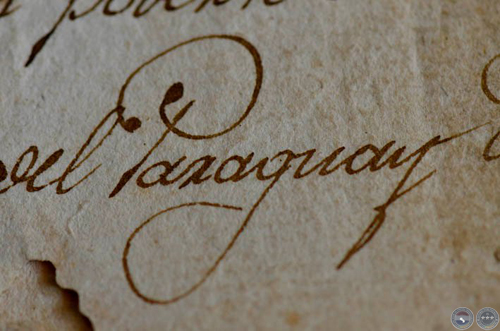 del Paraguay